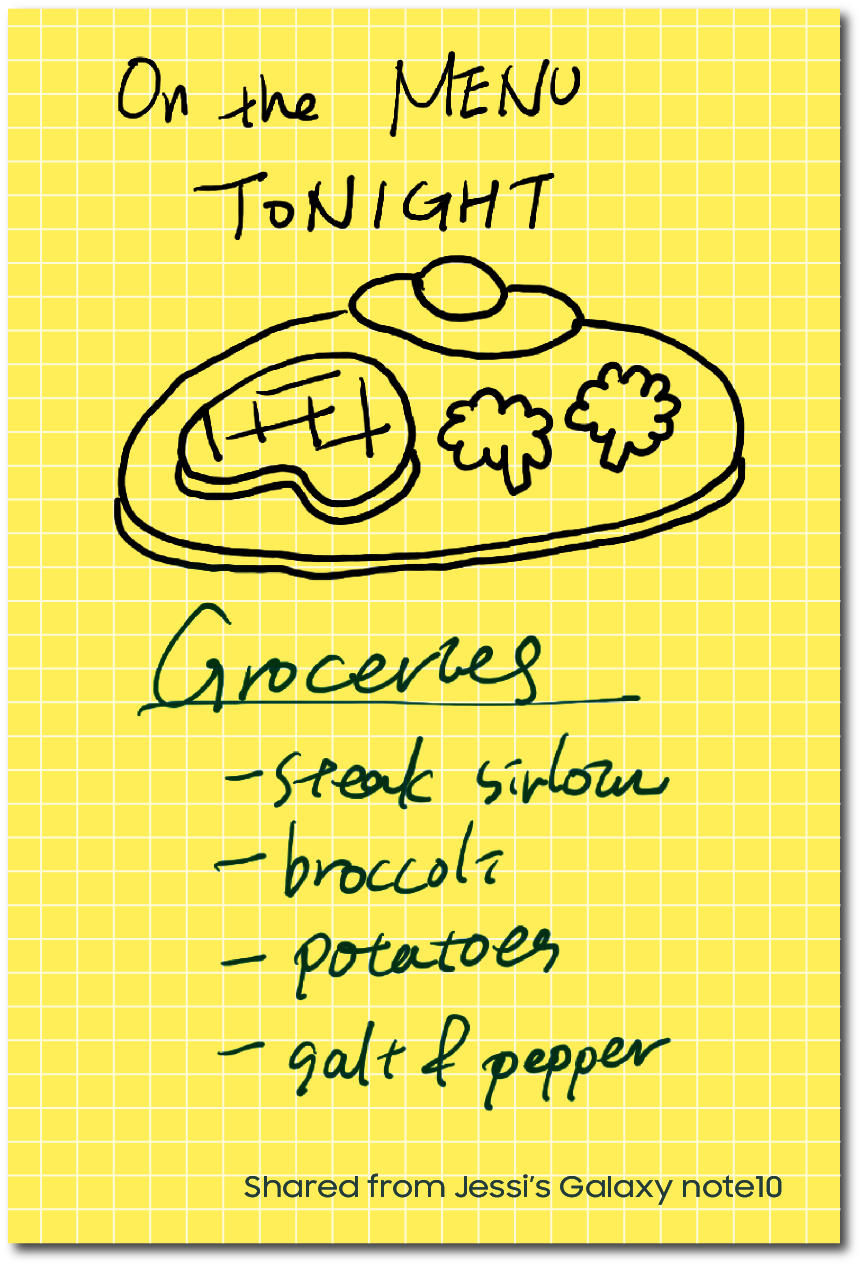 On the MENU
TONIGHT
Groceries
- steak sirloin
- broccoli
- potatoes
- salt & pepper
Shared from Jessi's Galaxy note10